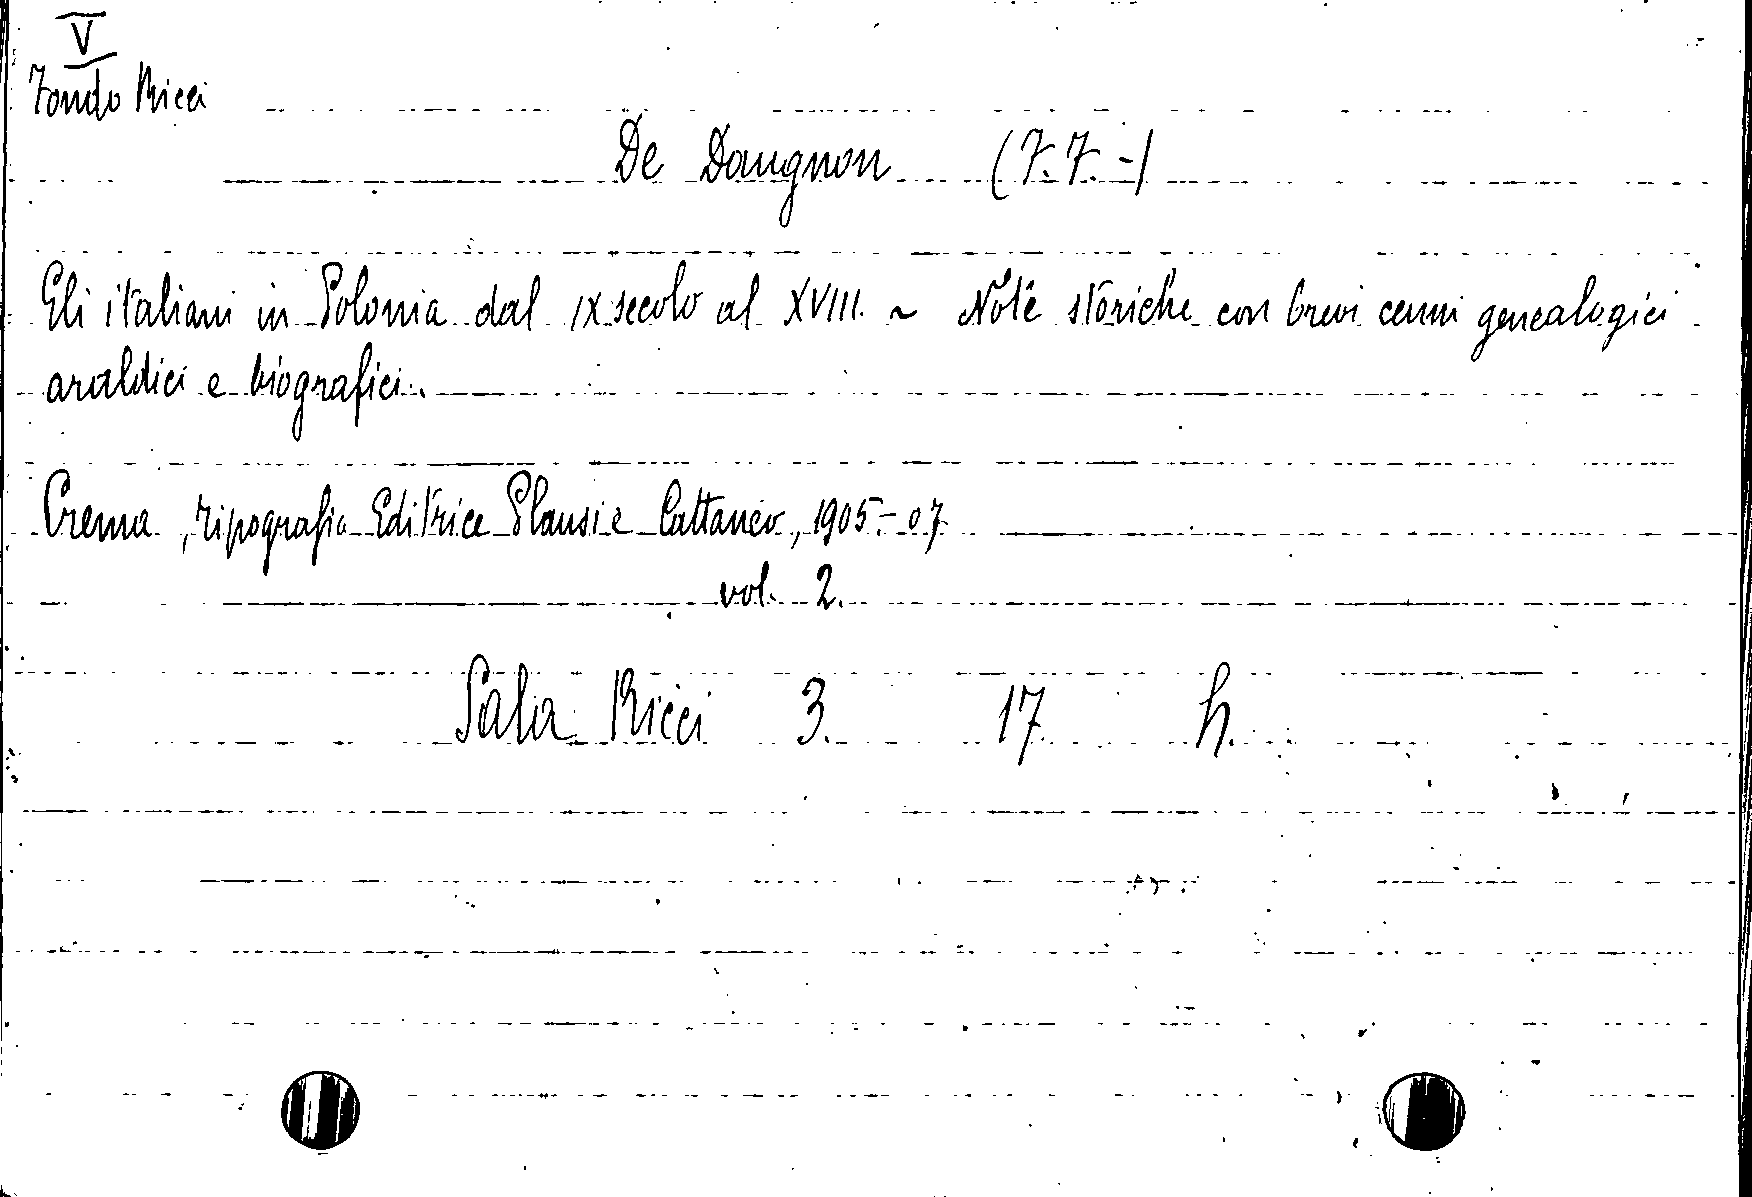 V
Fondo Ricci
De Daugnon (F.F.-)
Gli italiani in Polonia dal IX secolo al XVIII. ~ Note storiche con brevi cenni genealogici
araldici e biografici.
Crema, tipografia Editrice Plausi e Cattaneo, 1905.-07
vol. 2.
Sala Ricci 3. 17 h.